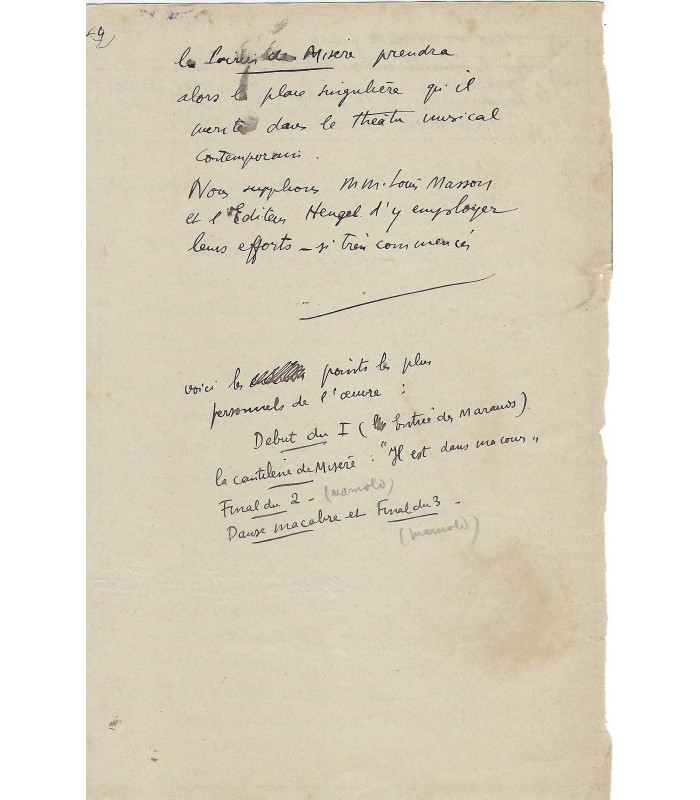 4
le Poirier de Misère prendra
alors la place singulière qu'il
mérite dans le théâtre musical
contemporain.
Nous supplions MM. Louis Masson
et l'Éditeur Heugel d'y employer
leurs efforts – si très commencés
voici les points les plus
personnels de l'œuvre :
Début du I (Entrée des Marauds)
la cantilène de Misère : "Il est dans ma cour"
Final du 2 – (Marnold)
Danse macabre et Final du 3 –
(Marnold)